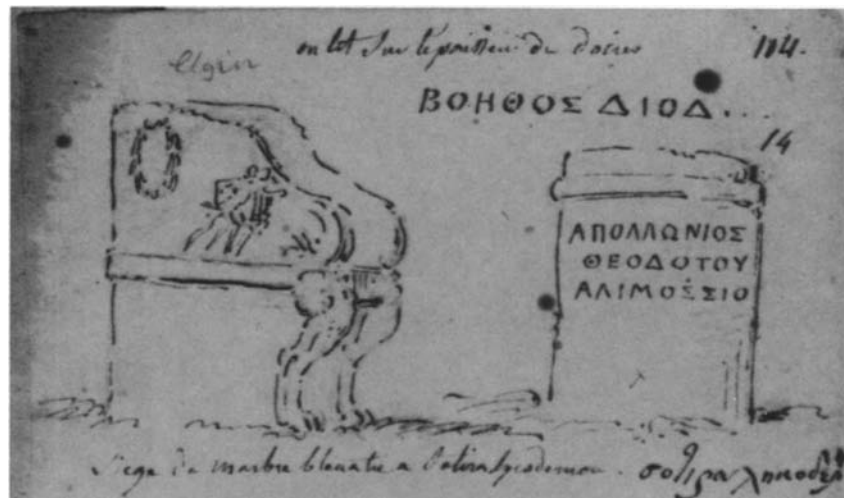 on lit sur l'epaisseur du dossier 104.
elgin
ΒΟΗΘΟΣ ΔΙΟΔ...
14
ΑΠΟΛΛΩΝΙΟΣ
ΘΕΟΔΟΤΟΥ
ΑΛΙΜΟΣΣΙΟ
Siege de marbre blanc a